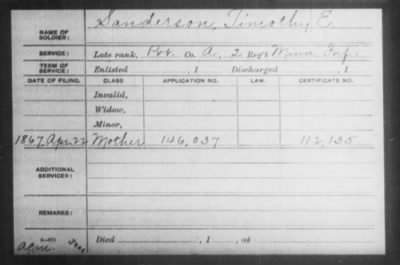 NAME OF SOLDIER: Sanderson, Timothy E.
SERVICE: Late rank, Pvt. Co. A, 2 Reg't Minn. Inf.
TERM OF SERVICE: Enlisted , 1 Discharged , 1
DATE OF FILING. CLASS APPLICATION NO. LAW. CERTIFICATE NO.
Invalid,
Widow,
Minor,
1867 Apr. 22 Mother 146,037 112,135
ADDITIONAL SERVICES:
REMARKS:
Died , 1 , at